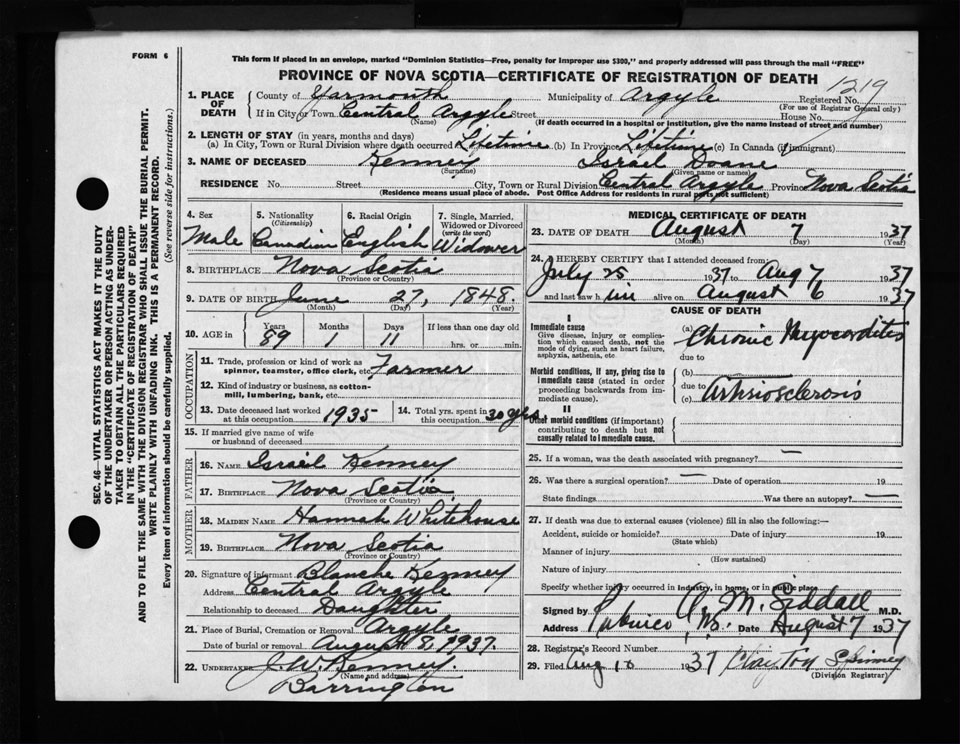 FORM 6
This form if placed in an envelope, marked "Dominion Statistics—Free, penalty for improper use $300," and properly addressed will pass through the mail "FREE"
PROVINCE OF NOVA SCOTIA—CERTIFICATE OF REGISTRATION OF DEATH
1219
1. PLACE OF DEATH
County of Yarmouth Municipality of Argyle Registered No.
(For use of Registrar General only)
If in City or Town Central Argyle Street House No.
(Name) (If death occurred in a hospital or institution, give the name instead of street and number)
2. LENGTH OF STAY (in years, months and days)
(a) In City, Town or Rural Division where death occurred Lifetime (b) In Province Lifetime (c) In Canada (if immigrant)
3. NAME OF DECEASED Kenney Israel Doane
(Surname) (Given name or names)
RESIDENCE No. Street City, Town or Rural Division Central Argyle Province Nova Scotia
(Residence means usual place of abode. Post Office Address for residents in rural parts not sufficient)
4. Sex Male
5. Nationality (Citizenship) Canadian
6. Racial Origin English
7. Single, Married, Widowed or Divorced (write the word) Widower
8. BIRTHPLACE Nova Scotia
(Province or Country)
9. DATE OF BIRTH June 27, 1848.
(Month) (Day) (Year)
10. AGE in Years 89 Months 1 Days 11 If less than one day old hrs. or min.
OCCUPATION
11. Trade, profession or kind of work as spinner, teamster, office clerk, etc. Farmer
12. Kind of industry or business, as cotton-mill, lumbering, bank, etc.
13. Date deceased last worked at this occupation 1935
14. Total yrs. spent in this occupation 30 yrs
15. If married give name of wife or husband of deceased
FATHER
16. NAME Israel Kenney
17. BIRTHPLACE Nova Scotia
(Province or Country)
MOTHER
18. MAIDEN NAME Hannah Whitehouse
19. BIRTHPLACE Nova Scotia
(Province or Country)
20. Signature of informant Blanche Kenney
Address Central Argyle
Relationship to deceased Daughter
21. Place of Burial, Cremation or Removal Argyle
Date of burial or removal August 8, 1937.
22. UNDERTAKER J. W. Kenney.
(Name and address)
Barrington
MEDICAL CERTIFICATE OF DEATH
23. DATE OF DEATH August 7 1937
(Month) (Day) (Year)
24. I HEREBY CERTIFY that I attended deceased from:
July 25 1937 to Aug 7 1937
and last saw him alive on August 6 1937
CAUSE OF DEATH
I
Immediate cause
Give disease, injury or complication which caused death, not the mode of dying, such as heart failure, asphyxia, asthenia, etc.
(a) Chronic Myocorditis
due to
Morbid conditions, if any, giving rise to immediate cause (stated in order proceeding backwards from immediate cause).
(b)
due to
(c) Artisiosclerosis
II
Other morbid conditions (if important) contributing to death but not causally related to immediate cause.
25. If a woman, was the death associated with pregnancy? —
26. Was there a surgical operation? — Date of operation 19
State findings Was there an autopsy? —
27. If death was due to external causes (violence) fill in also the following:—
Accident, suicide or homicide? Date of injury 19
(State which)
Manner of injury
(How sustained)
Nature of injury
Specify whether injury occurred in industry, in home, or in public place
Signed by A. M. Siddall M.D.
Address Pubnico N.S. Date August 7 1937
28. Registrar's Record Number
29. Filed Aug 16 1937 Clayton Spinney
(Division Registrar)
SEC. 46—VITAL STATISTICS ACT MAKES IT THE DUTY
OF THE UNDERTAKER OR PERSON ACTING AS UNDER-
TAKER TO OBTAIN ALL THE PARTICULARS REQUIRED
IN THE "CERTIFICATE OF REGISTRATION OF DEATH"
AND TO FILE THE SAME WITH THE DIVISION REGISTRAR WHO SHALL ISSUE THE BURIAL PERMIT.
WRITE PLAINLY WITH UNFADING INK. THIS IS A PERMANENT RECORD.
Every item of information should be carefully supplied. (See reverse side for instructions.)